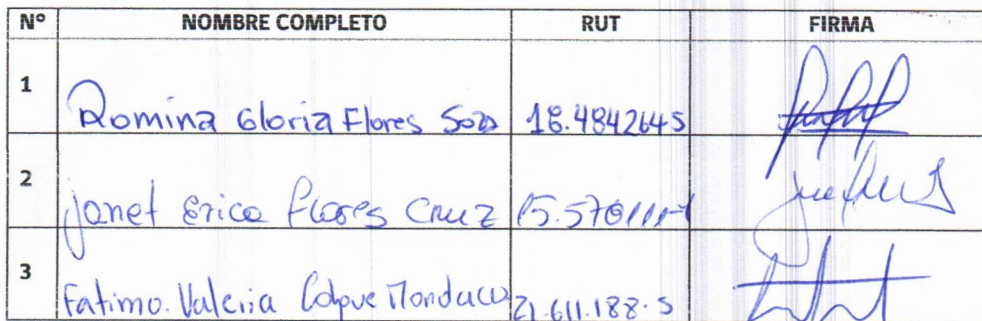 Nº NOMBRE COMPLETO RUT FIRMA
1 Romina Gloria Flores 18.4842645
2 Janet Erica Flores Cruz
3 Fatima Valeria Colque 21.611.188-5